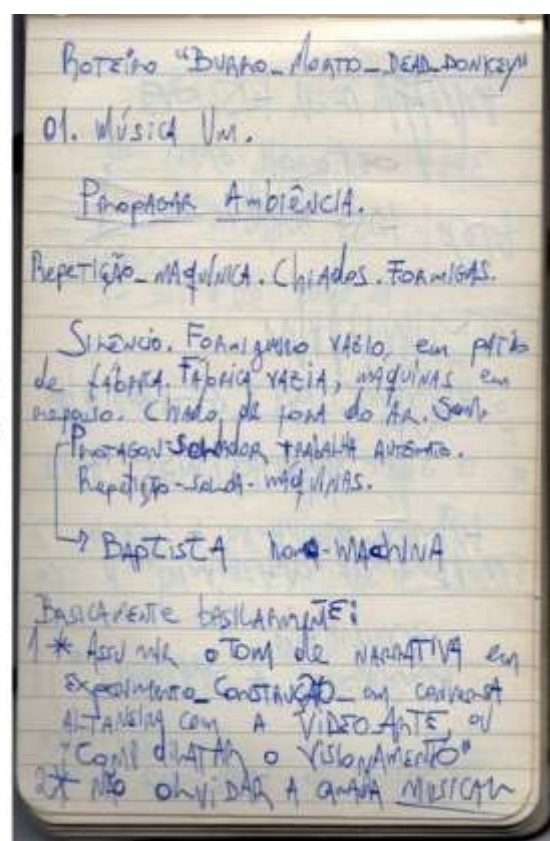 Roteiro "Burro_Morto_Dead_Donkey"
01. Música Um.
Propagar Ambiência.
Repetição_Maquínica. Chiados. Formigas.
Silêncio. Formigueiro vazio, em pátio
de fábrica. Fábrica vazia, máquinas em
repouso. Chiado, de fora do Ar. Som.
Protagon-Soldador trabalha autômato.
Repetição-solda-máquinas.
→ Baptista homo-machina
Basicamente basilarmente:
1* Assumir o Tom de narrativa em
Experimento_Construção_em conversa
altaneira com a Vídeo-Arte, ou
"Como dilatar o visionamento"
2* Não olvidar a musical